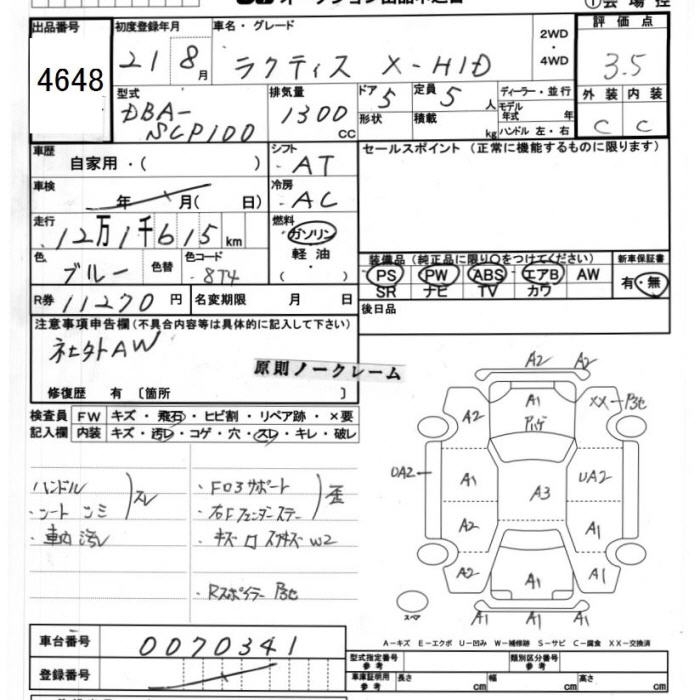 ①会場控
出品番号
4648
初度登録年月
21 8月
車名・グレード
ラクティス X-HID
2WD
・
4WD
評価点
3.5
外装 内装
C C
型式
DBA-
SCP100
排気量
1300
CC
ドア
5
形状
定員
5人
積載
kg
ディーラー・並行
モデル
年式 年
ハンドル 左・右
車歴
自家用・( )
シフト
AT
車検
年 月( 日)
冷房
AC
走行
12万1千615km
燃料
ガソリン
軽油
・
( )
色
ブルー
色替
色コード
8T4
R券 11270円
名変期限 月 日
セールスポイント(正常に機能するものに限ります)
装備品(純正品に限り○をつけてください)
PS PW ABS エアB AW
SR ナビ TV カワ
新車保証書
有・無
後日品
注意事項申告欄(不具合内容等は具体的に記入して下さい)
社外AW
原則ノークレーム
修復歴 有 〔箇所 〕
検査員
記入欄
FW キズ・飛石・ヒビ割・リペア跡・×要
内装 キズ・汚レ・コゲ・穴・スレ・キレ・破レ
ハンドル
・シート
スレ
・車内汚レ
・F03サポート
・右Fフェンダーステー
歪
・Rスポイラー
A2 A2
A2 A1 XX
UA2 A1 A3 UA2
A2 A1
A2 A1 A1
A1 A1 A1
スペア
A－キズ E－エクボ U－凹み W－補修跡 S－サビ C－腐食 XX－交換済
車台番号
0070341
登録番号
型式指定番号
参考
類別区分番号
参考
車庫証明用
参考
長さ cm 幅 cm 高さ cm